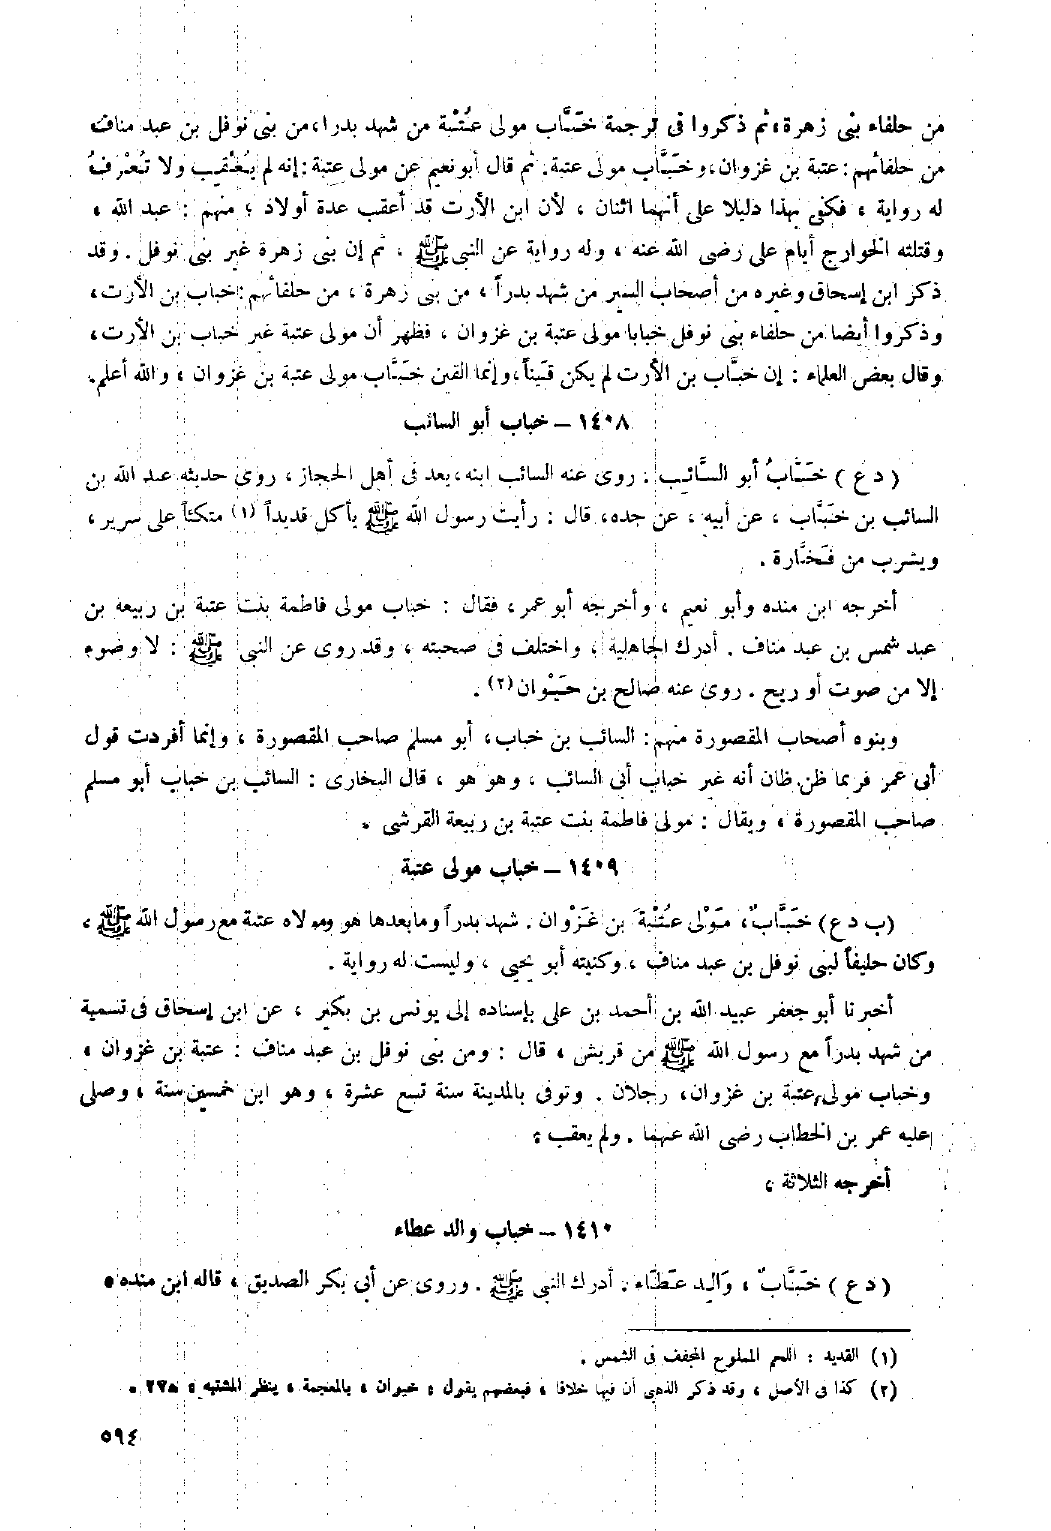 من حلفاء بنى زهرة، ثم ذكروا فى ترجمة خَبَّاب مولى عُتْبة من شهد بدرا، من بنى نوفل بن عبد مناف
من حلفائهم : عتبة بن غزوان، وخَبَّاب مولى عتبة. ثم قال أبو نعيم عن مولى عتبة : إنه لم يُعْقِب ولا تُعْرفُ
له رواية ، فكفى بهذا دليلا على أنهما اثنان ، لأن ابن الأرت قد أعقب عدة أولاد ؛ منهم : عبد الله ،
وقتلته الخوارج أيام على رضى الله عنه ، وله رواية عن النبى ﷺ ، ثم إن بنى زهرة غير بنى نوفل . وقد
ذكر ابن إسحاق وغيره من أصحاب السير من شهد بدراً ، من بنى زهرة ، من حلفائهم : خباب بن الأرت،
وذكروا أيضا من حلفاء بنى نوفل خبابا مولى عتبة بن غزوان ، فظهر أن مولى عتبة غير خباب بن الأرت،
وقال بعض العلماء : إن خبَّاب بن الأرت لم يكن قَيناً، وإنما القين خَبَّاب مولى عتبة بن غزوان ، والله أعلم.
١٤٠٨ – خباب أبو السائب
( د ع ) خَبَّابُ أبو السَّائِب . روى عنه السائب ابنه، يعد فى أهل الحجاز ، روى حديثه عبد الله بن
السائب بن خَبَّاب ، عن أبيه ، عن جده، قال : رأيت رسول الله ﷺ يأكل قديداً (١) متكئاً على سرير ،
ويشرب من فَخَّارة .
أخرجه ابن منده وأبو نعيم ، وأخرجه أبو عمر، فقال : خباب مولى فاطمة بنت عتبة بن ربيعة بن
عبد شمس بن عبد مناف . أدرك الجاهلية ، واختلف فى صحبته ، وقد روى عن النبى ﷺ : لا وضوء
إلا من صوت أو ريح . روى عنه صالح بن حَيْوان (٢) .
وبنوه أصحاب المقصورة منهم : السائب بن خباب، أبو مسلم صاحب المقصورة ، وإنما أفردت قول
أبى عمر فربما ظن ظان أنه غير خباب أبى السائب ، وهو هو ، قال البخارى : السائب بن خباب أبو مسلم
صاحب المقصورة ، ويقال : مولى فاطمة بنت عتبة بن ربيعة القرشى .
١٤٠٩ – خباب مولى عتبة
(ب د ع) خَبَّابٌ، مَوْلى عُتْبةَ بن غَزْوان . شهد بدراً وما بعدها هو ومولاه عتبة مع رسول الله ﷺ ،
وكان حليفاً لبنى نوفل بن عبد مناف ، وكنيته أبو يحيى ، وليست له رواية .
أخبرنا أبو جعفر عبيد الله بن أحمد بن على بإسناده إلى يونس بن بكير ، عن ابن إسحاق فى تسمية
من شهد بدراً مع رسول الله ﷺ من قريش ، قال : ومن بنى نوفل بن عبد مناف : عتبة بن غزوان ،
وخباب مولى عتبة بن غزوان، رجلان . وتوفى بالمدينة سنة تسع عشرة ، وهو ابن خمسين سنة ، وصلى
عليه عمر بن الخطاب رضى الله عنهما . ولم يعقب ؛
أخرجه الثلاثة ،
١٤١٠ – خباب والد عطاء
( د ع ) خَبَّابٌ ، وَالِد عَطَاء . أدرك النبى ﷺ . وروى عن أبى بكر الصديق ، قاله ابن منده .
(١) القديد : اللحم المملوح المجفف فى الشمس .
(٢) كذا فى الأصل ، وقد ذكر الذهبى أن فيها خلافا ، فبعضهم يقول : خيوان ، بالمعجمة ، ينظر المشتبه :
٥٩٤